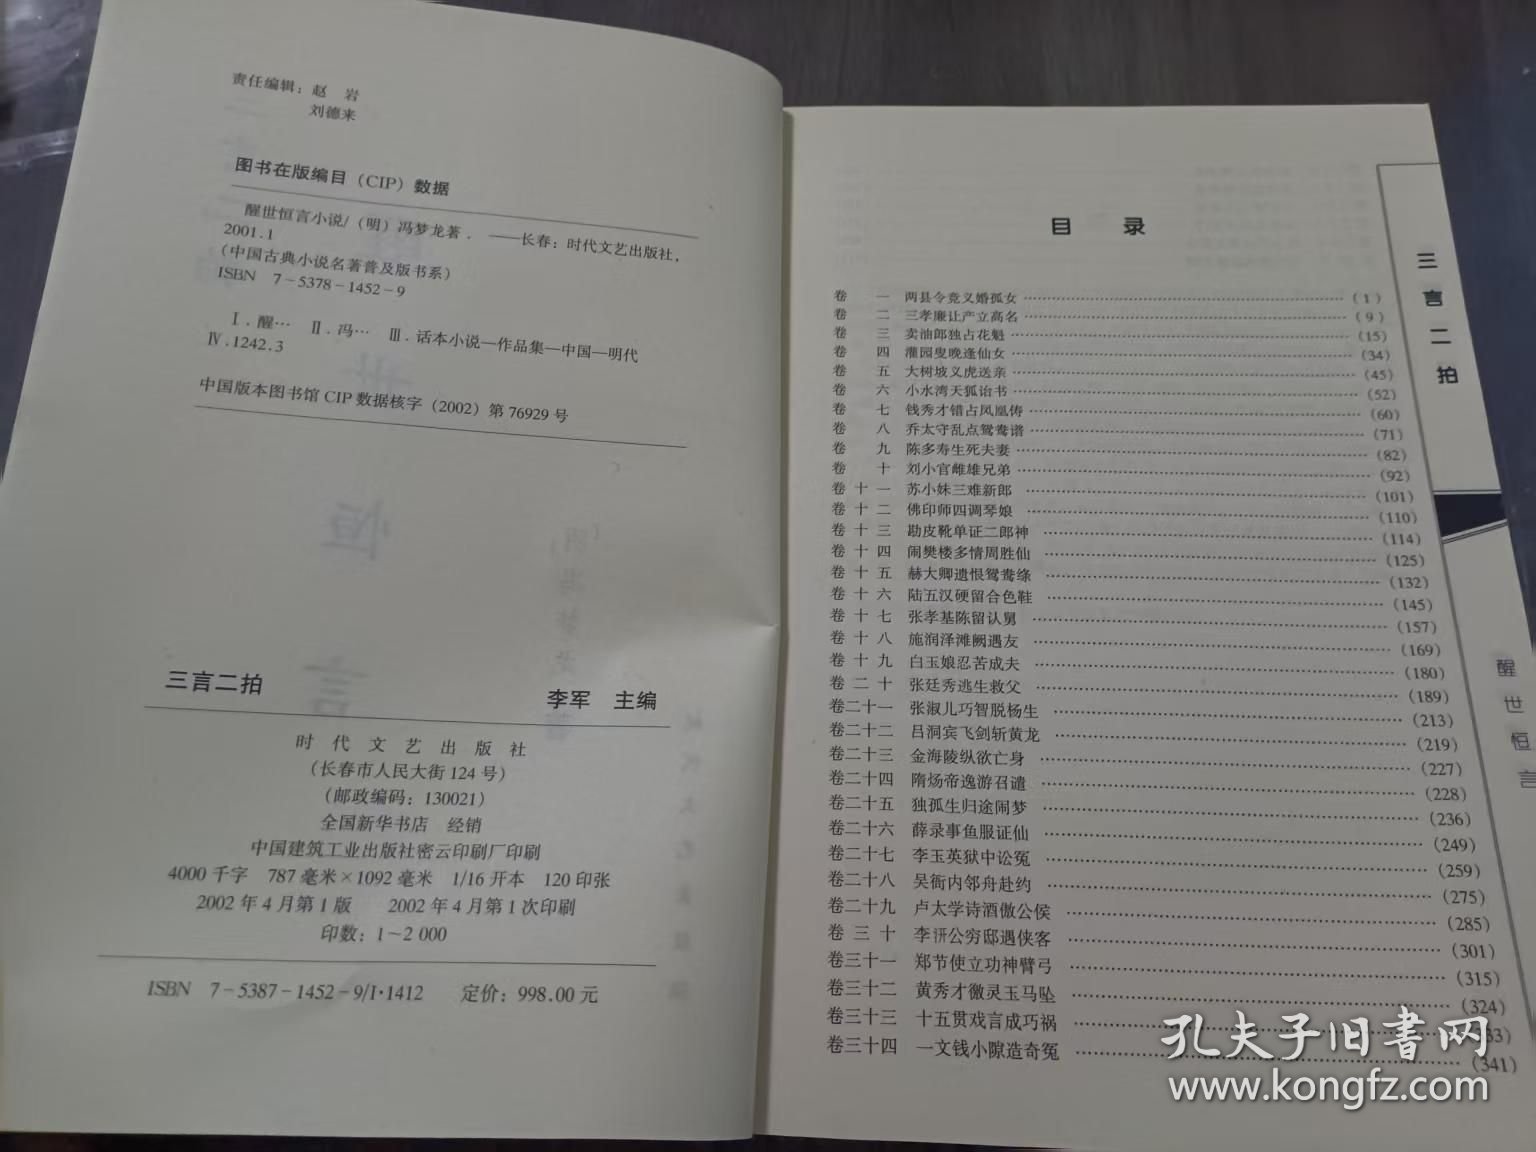 责任编辑：赵 岩
刘德来
图书在版编目（CIP）数据
醒世恒言小说/（明）冯梦龙著． ——长春：时代文艺出版社，
2001.1
（中国古典小说名著普及版书系）
ISBN 7-5378-1452-9
Ⅰ.醒… Ⅱ.冯… Ⅲ.话本小说—作品集—中国—明代
Ⅳ.1242.3
中国版本图书馆CIP数据核字（2002）第76929号
三言二拍 李军 主编
时代文艺出版社
（长春市人民大街124号）
（邮政编码：130021）
全国新华书店 经销
中国建筑工业出版社密云印刷厂印刷
4000千字 787毫米×1092毫米 1/16开本 120印张
2002年4月第1版 2002年4月第1次印刷
印数：1～2 000
ISBN 7-5387-1452-9/I·1412 定价：998.00元
目 录
卷 一 两县令竞义婚孤女 （1）
卷 二 三孝廉让产立高名 （9）
卷 三 卖油郎独占花魁 （15）
卷 四 灌园叟晚逢仙女 （34）
卷 五 大树坡义虎送亲 （45）
卷 六 小水湾天狐诒书 （52）
卷 七 钱秀才错占凤凰俦 （60）
卷 八 乔太守乱点鸳鸯谱 （71）
卷 九 陈多寿生死夫妻 （82）
卷 十 刘小官雌雄兄弟 （92）
卷十一 苏小妹三难新郎 （101）
卷十二 佛印师四调琴娘 （110）
卷十三 勘皮靴单证二郎神 （114）
卷十四 闹樊楼多情周胜仙 （125）
卷十五 赫大卿遗恨鸳鸯绦 （132）
卷十六 陆五汉硬留合色鞋 （145）
卷十七 张孝基陈留认舅 （157）
卷十八 施润泽滩阙遇友 （169）
卷十九 白玉娘忍苦成夫 （180）
卷二十 张廷秀逃生救父 （189）
卷二十一 张淑儿巧智脱杨生 （213）
卷二十二 吕洞宾飞剑斩黄龙 （219）
卷二十三 金海陵纵欲亡身 （227）
卷二十四 隋炀帝逸游召谴 （228）
卷二十五 独孤生归途闹梦 （236）
卷二十六 薛录事鱼服证仙 （249）
卷二十七 李玉英狱中讼冤 （259）
卷二十八 吴衙内邻舟赴约 （275）
卷二十九 卢太学诗酒傲公侯 （285）
卷三十 李汧公穷邸遇侠客 （301）
卷三十一 郑节使立功神臂弓 （315）
卷三十二 黄秀才徼灵玉马坠 （324）
卷三十三 十五贯戏言成巧祸 33）
卷三十四 一文钱小隙造奇冤 （341）
三言二拍
醒世恒言
孔夫子旧书网
www.kongfz.com